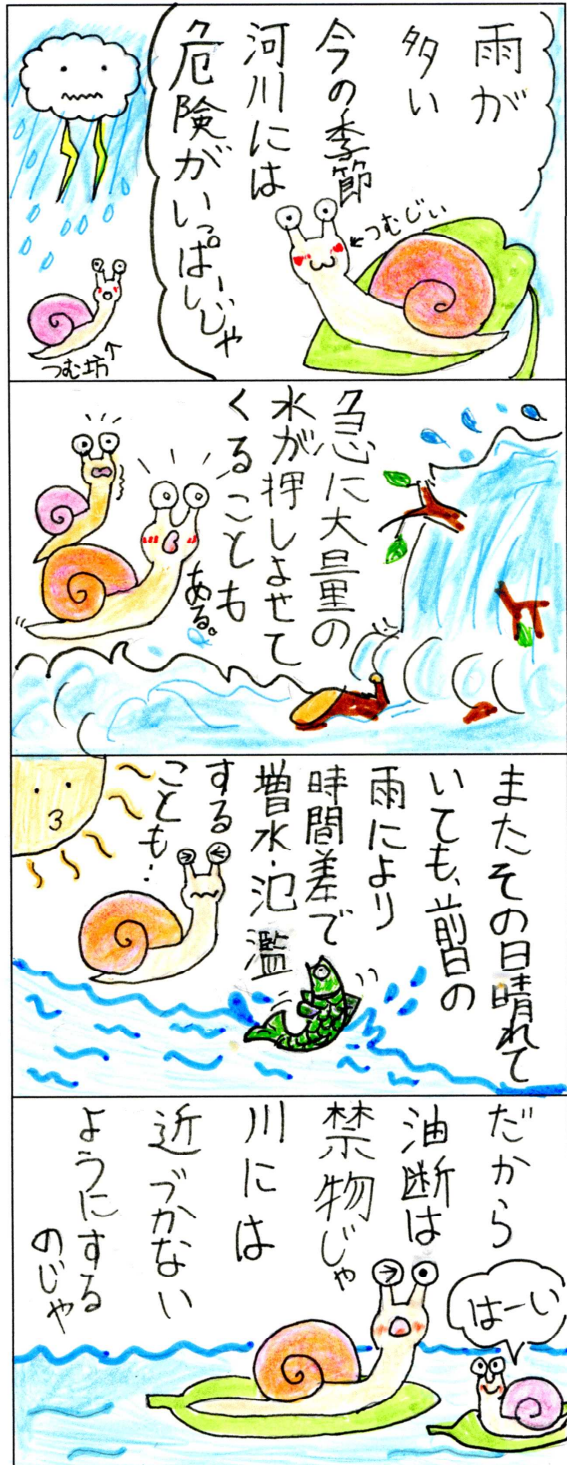 雨が
多い
今の季節
河川には
危険がいっぱーいじゃ
つむじい
つむ坊
急に大量の
水が押しよせて
くることも
ある。
またその日晴れて
いても、前日の
雨により
時間差で
増水・氾濫
する
ことも…
だから
油断は
禁物じゃ
川には
近づかない
ようにする
のじゃ
はーい